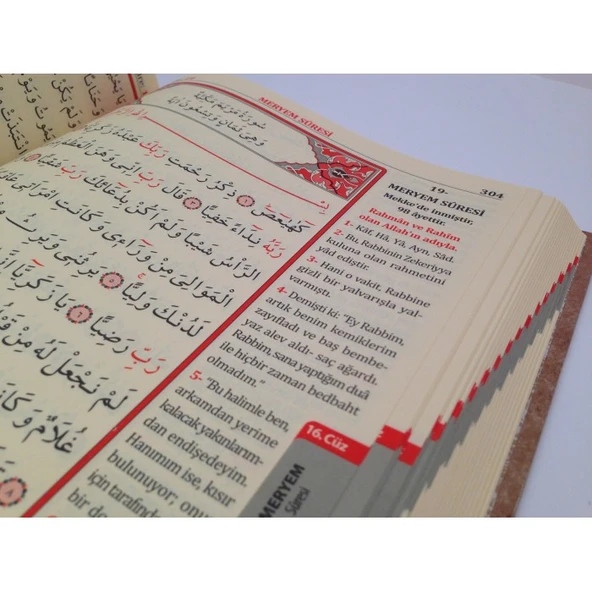 MERYEM SÛRESİ
304
سُورَةُ مَرْيَمَ مَكِّيَّةٌ
وَهِيَ ثَمَانٍ وَتِسْعُونَ اٰيَةً
كٓهٰيٰعٓصٓ ۞ ذِكْرُ رَحْمَتِ رَبِّكَ عَبْدَهُ زَكَرِيَّا
رَبَّهُ نِدَٓاءً خَفِيًّا ۞ قَالَ رَبِّ اِنّ۪ي وَهَنَ الْعَظْمُ
الرَّأْسُ شَيْبًا وَلَمْ اَكُنْ بِدُعَٓائِكَ رَبِّ شَقِيًّا
الْمَوَالِيَ مِنْ وَرَٓاء۪ي وَكَانَتِ امْرَاَت۪ي
لَدُنْكَ وَلِيًّا ۞ يَرِثُن۪ي وَيَرِثُ
رَبِّ رَضِيًّا ۞ يَا زَكَرِيَّٓا
لَمْ نَجْعَلْ لَهُ مِنْ
غُلَامٌ وَكَانَتِ
19-
MERYEM SÛRESİ
Mekke'de inmiştir.
98 âyettir.
Rahmân ve Rahîm
olan Allah'ın adıyla.
1- Kâf, Hâ, Yâ, Ayn, Sâd.
2- Bu, Rabbinin Zekeriyya
kuluna olan rahmetini
yâd ediştir.
3- Hani o vakit, Rabbine
gizli bir yalvarışla yal-
varmıştı.
4- Demişti ki: "Ey Rabbim,
artık benim kemiklerim
zayıfladı ve baş bembe-
yaz alev aldı- saç ağardı.
Rabbim, sana yaptığım duâ
ile hiçbir zaman bedbaht
olmadım."
5- "Bu halimle ben,
arkamdan yerime
kalacak yakınlarım-
dan endişedeyim.
Hanımım ise, kısır
bulunuyor; onun
için tarafından
bir
16. Cüz
MERYEM
Sûresi